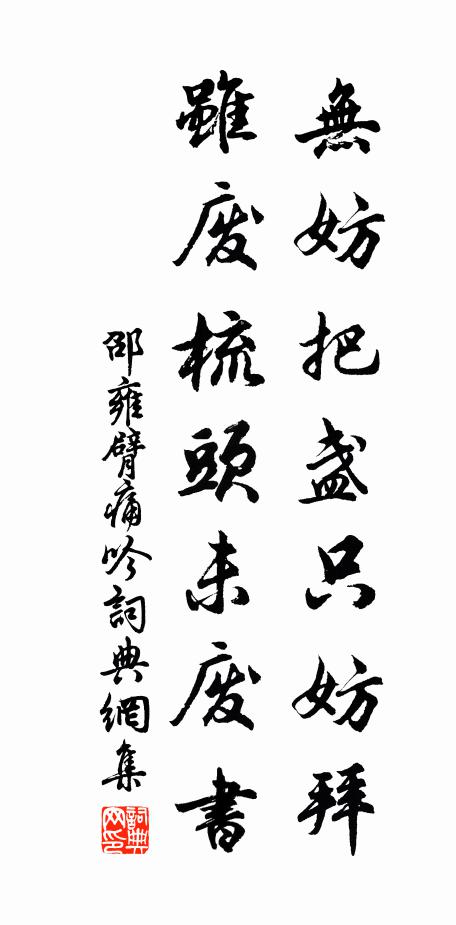 無妨把盞只妨拜
雖廢梳頭未廢書
邵雍臂痛吟詞典網集
詞典网印